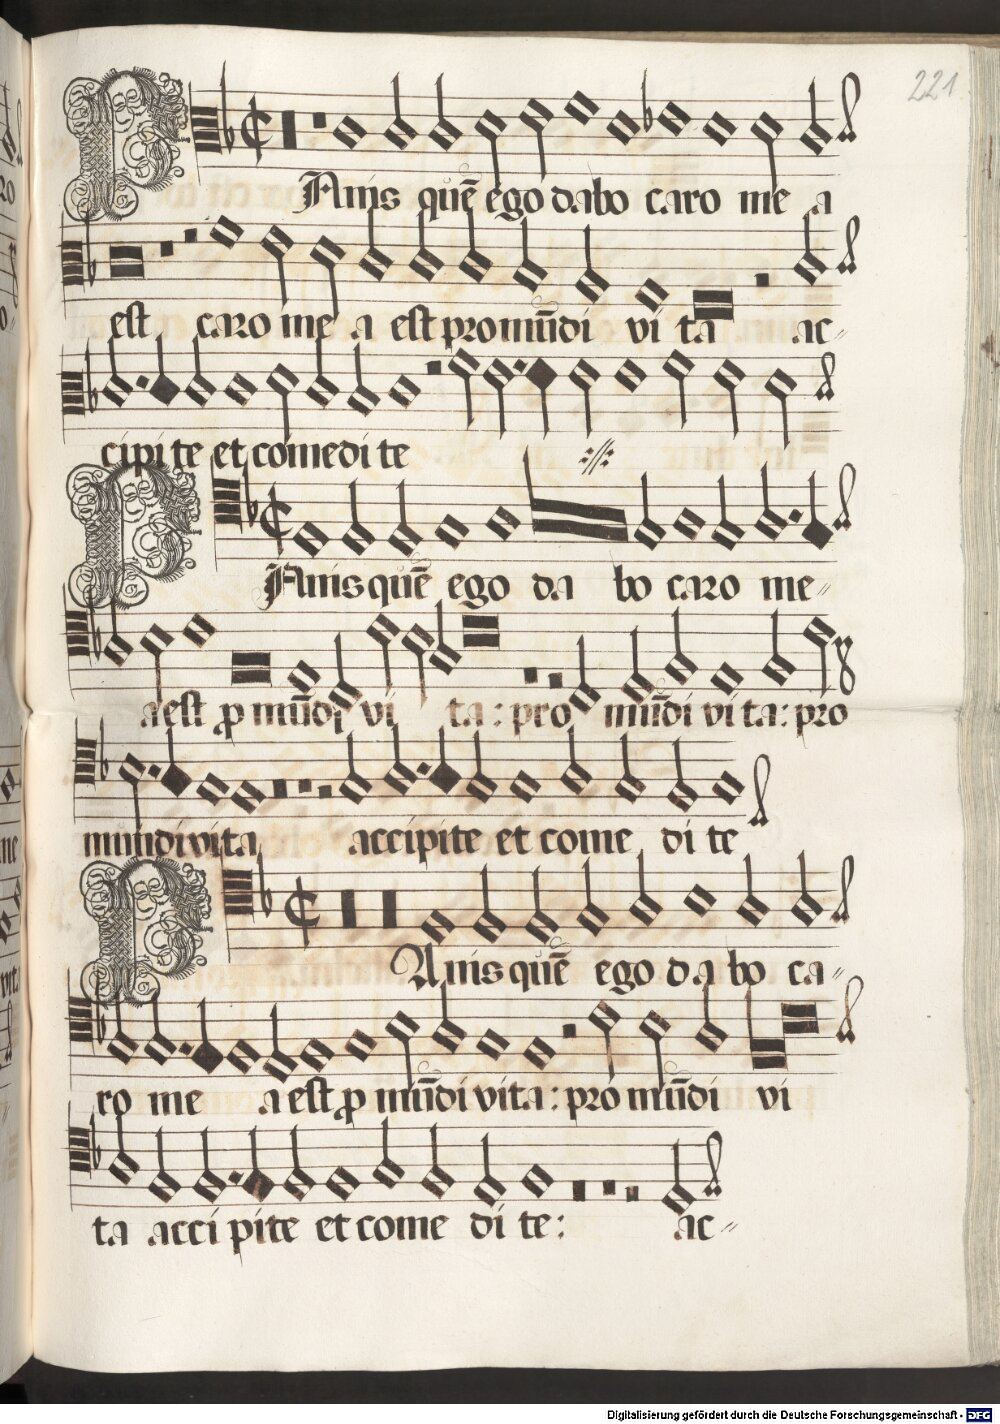 221
PAnis quē ego dabo caro me a
est caro me a est pro mūdi vi ta ac-
cipi te et comedi te
PAnis quē ego da bo caro me-
a est p mūdi vi ta: pro mūdi vi ta: pro
mundi vita accipite et come di te
PAnis quē ego da bo ca-
ro me a est p mūdi vita: pro mūdi vi
ta acci pite et come di te: ac-
Digitalisierung gefördert durch die Deutsche Forschungsgemeinschaft - DFG